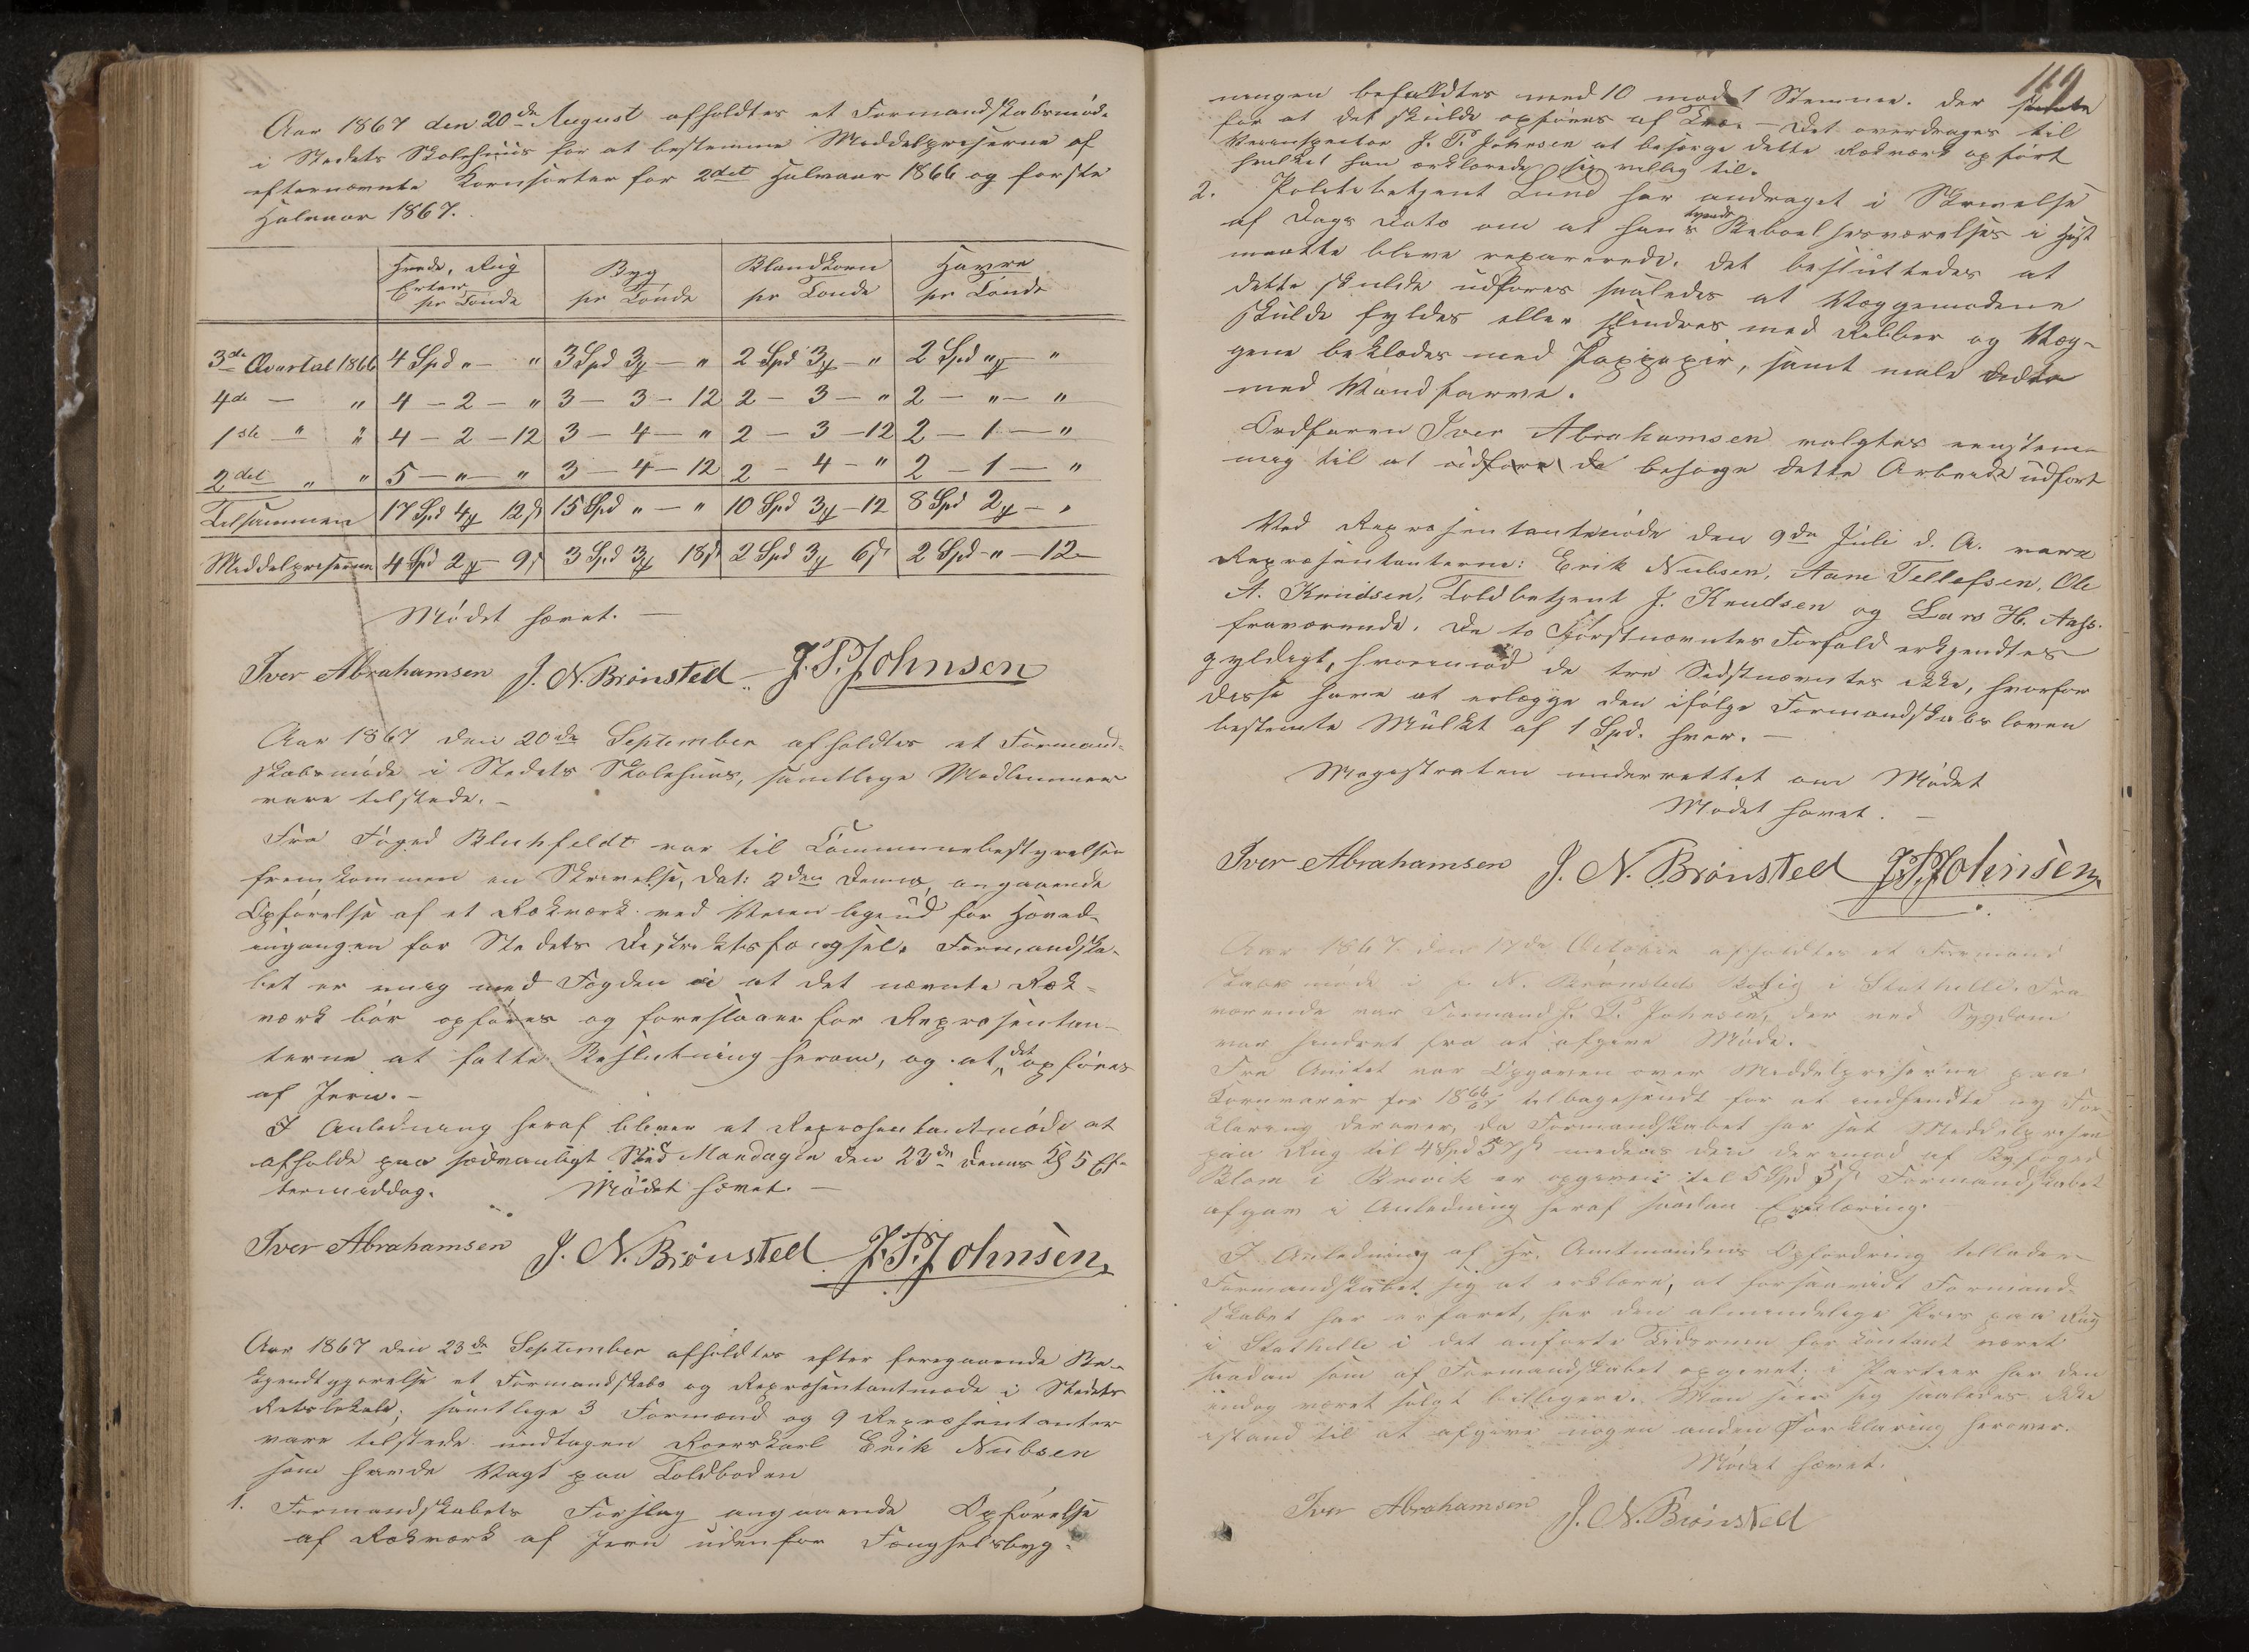 Aar 1867 den 20de August afholdtes et Formandskabsmøde
i Stedets Skolehuus for at bestemme Middelpriserne af
efternævnte Kornsorter for 2det Halvaar 1866 og første
Halvaar 1867.
Hvede, Rug Erter pr Tønde | Byg pr Tønde | Blandkorn pr Tønde | Havre pr Tønde
3de Qvartal 1866 | 4 Spd " - " | 3 Spd 3 - " | 2 Spd 3 - " | 2 Spd " "
4de - " | 4 - 2 - " | 3 - 3 - 12 | 2 - 3 - " | 2 - " - "
1ste " " | 4 - 2 - 12 | 3 - 4 - " | 2 - 3 - 12 | 2 - 1 - "
2det " " | 5 - " - " | 3 - 4 - 12 | 2 - 4 - " | 2 - 1 - "
Tilsammen | 17 Spd 4 12 | 15 Spd " - " | 10 Spd 3 - 12 | 8 Spd 2 - "
Middelpriserne | 4 Spd 2 - 9 | 3 Spd 3 18 | 2 Spd 3 6 | 2 Spd - " - 12
Mødet hævet. -
Iver Abrahamsen J. N. Brønsted J. P. Johnsen
Aar 1867 den 20de September afholdtes et Formand-
skabsmøde i Stedets Skolehuus, samtlige Medlemmer
vare tilstede. -
Fra Foged Blichfeldt var til Communebestyrelsen
fremkommen en Skrivelse, dat: 2den Dennes, angaaende
Opførelse af et Rækværk ved Veien ligeud for Hoved-
indgangen for Stedets Distriktsfængsel. Formandska-
bet er enig med Fogden i at det nævnte Ræk-
værk bør opføres og foreslaaer for Repræsentan-
terne at fatte Beslutning herom, og at det opføres
af Jern. -
I Anledning heraf bliver et Repræsentantmøde at
afholde paa sædvanligt Sted Mandagen den 23de Dennes Kl 5 Ef-
termiddag. Mødet hævet. -
Iver Abrahamsen J. N. Brønsted J. P. Johnsen
Aar 1867 den 23de September afholdtes efter foregaaende Be-
kjendtgjørelse et Formandskabs og Repræsentantmøde i Stedets
Retslokale; samtlige 3 Formænd og 9 Repræsentanter
vare tilstede undtagen Roerskarl Erik Nubsen
som havde Vagt paa Toldboden
1. Formandskabets Forslag angaaende Opførelse
af Rækværk af Jern udenfor Fængselsbyg-
119
ningen befaldtes med 10 mod 1 Stemme. der stemte
for at det skulde opføres af Træ. - Det overdrages til
Veiinspektør J. P. Johnsen at besørge dette Rækværk opført
hvilket han erklærede sig villig til.
2. Politibetjent Lund har andraget i Skrivelse
af Dags Dato om at hans tvende Beboelsesværelser i Huset
maatte blive reparerede. Det besluttedes at
dette skulde udføres saaledes at Væggemodene
skulde fyldes eller med Ribber og Væg-
gene beklædes med Pappapir, samt male dette
med Vandfarve.
Ordføren Iver Abrahamsen valgtes eenstem-
mig til at udføre de besørge dette Arbeide udført
Ved Repræsentantmøde den 9de Juli d. A. vare
Repræsentanterne: Erik Nubsen, Aane Tellefsen, Ole
A. Knudsen, Toldbetjent J. Knudsen og Lars H. Aass
fraværende. De to Førstnævntes Forfald erkjendtes
gyldigt, hvorimod de tre Sidstnævntes ikke, hvorfor
disse have at erlægge den ifølge Formandskabsloven
bestemte Mulkt af 1 Spd. hver. -
Magistraten underrettet om Mødet
Mødet hævet. -
Iver Abrahamsen J. N. Brønsted J. P. Johnsen
Aar 1867 den 17de October afholdtes et Formand
skabsmøde i J. N. Brønsteds Bolig i Stathelle. Fra-
værende var Formand J. P. Johnsen, der ved Sygdom
var hindret fra at afgive Møde.
Fra Amtet var Opgaven over Middelpriserne paa
Kornvarer for 1866/67 tilbagesendt for at indhendte ny For-
klaring derover, da Formandskabet har sat Middelprisen
paa Rug til 4 Spd medens den derimod af Byfoged
Blom i Brevik er opgiven til 5 Spd Formandskabet
afgav i Anledning heraf saadan Erklæring.
I Anledning af Hr. Amtmandens Opfordring tillader
Formandskabet sig at erklære, at forsaavidt Formand-
skabet har erfaret, har den almindelige Priis paa Rug
i Stathelle i det anførte Tidsrum for kontant været
saadan som af Formandskabet opgivet; i Partier har den
endog været solgt billigere. Man seer sig saaledes ikke
istand til at afgive nogen anden Forklaring herover.
Mødet hævet.
Iver Abrahamsen J. N. Brønsted